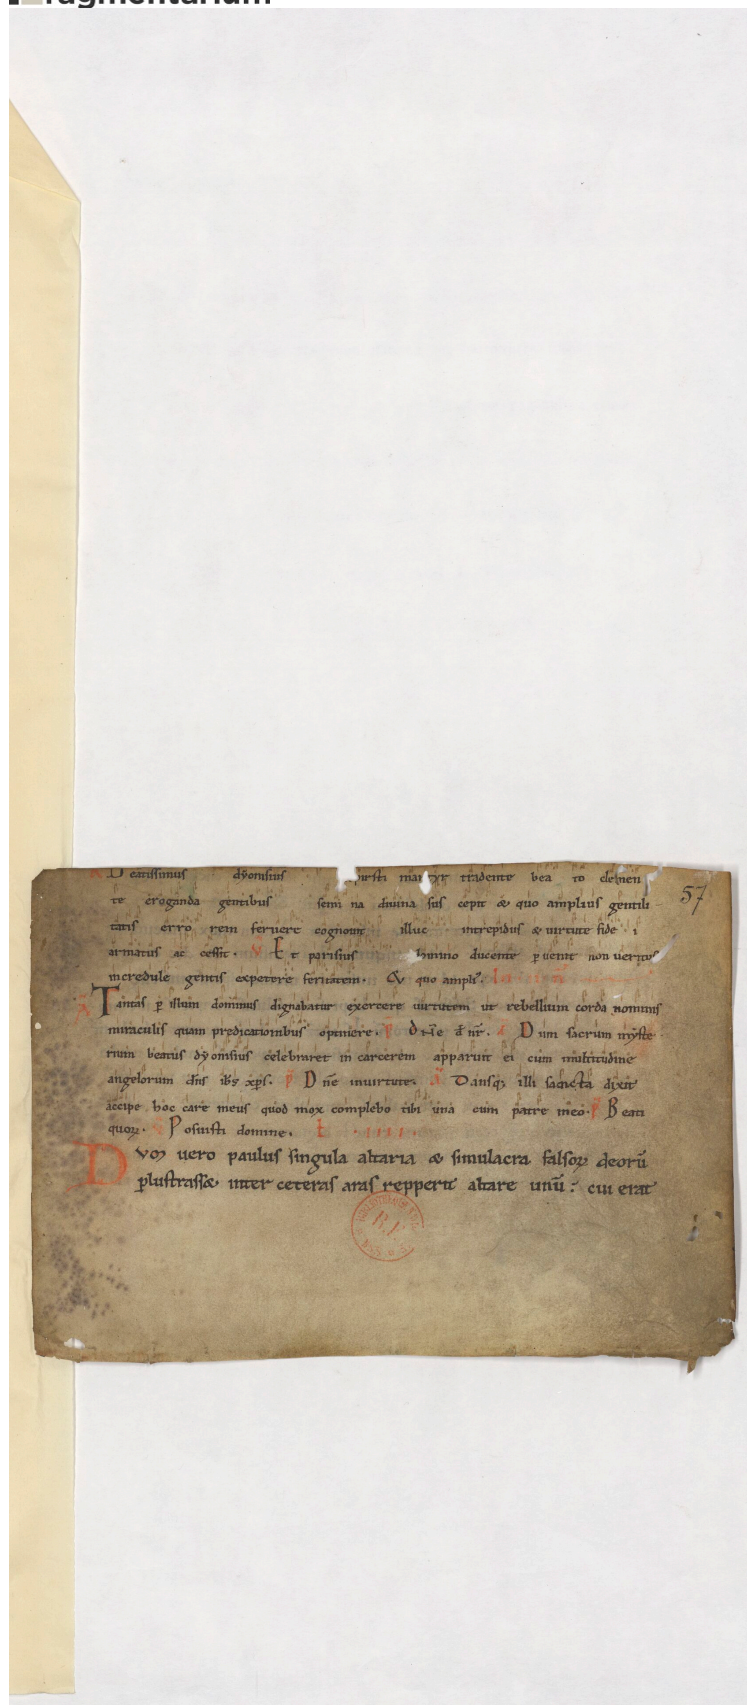 fragmentarium
57
Beatissimus dyonisius martyr tradente bea to clemen
te eroganda gentibus semi na divina sus cepit & quo amplius gentili
tatis erro rem fervere cognovit illuc intrepidus & virtute fide i
armatus ac cessit. V Et parisius domino ducente pvenit non veritus
incredule gentis expetere feritatem. & quo ampli9.
A Tantas p illum dominus dignabatur exercere virtutem ut rebellium corda hominum
miraculis quam predicationibus optinere. p̄ dnē d̄ nr̄. a Dum sacrum myste
rium beatus dyonisius celebraret in carcerem apparuit ei cum multitudine
angelorum dn̄s ih̄s xp̄s. p̄ Dn̄e invirtute. a Dansq; illi sancta dixit
accipe hoc care meus quod mox complebo tibi una cum patre meo. p̄ Beati
quoꝝ. Posuisti domine.
Dvoꝫ vero paulus singula altaria & simulacra falsoꝝ deorū
plustrass& inter ceteras aras repperit altare unū: cui erat
R.F.